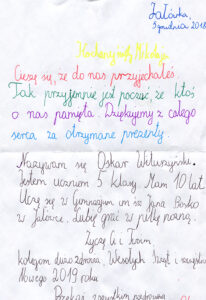 Jałówka,
5 grudnia 2018
Kochany św. Mikołaju
Cieszę się, że do nas przyjechałeś.
Tak przyjemnie jest poczuć, że ktoś
o nas pamięta. Dziękujemy z całego
serca za otrzymane prezenty.
Nazywam się Oskar
Jestem uczniem 5 klasy. Mam 10 lat
Uczę się w Gimnazjum im św Jana Bosko
w Jałówce. Lubię grać w piłkę nożną.
Życzę Ci i Twoim
kolegom dużo zdrowia, Wesołych Świąt i szczęśliwego
Nowego 2019 roku
wszystkim